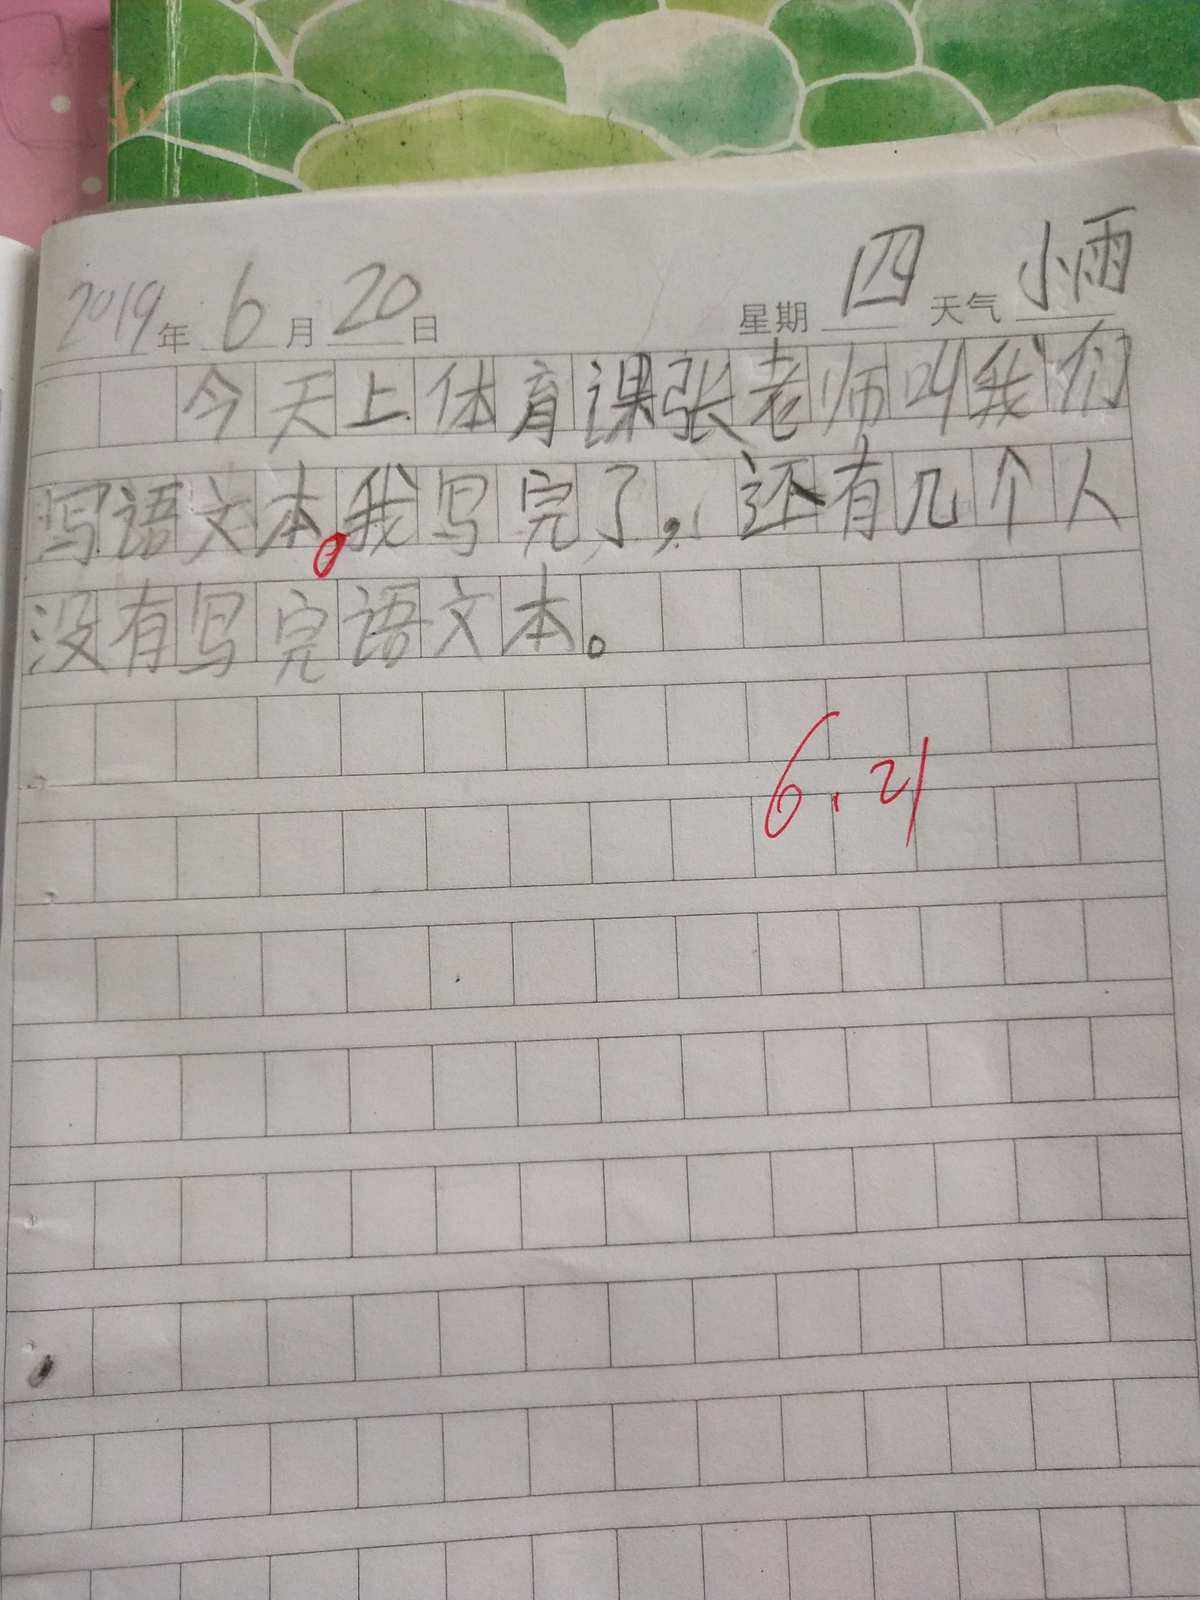 2019年 6月 20日 星期 四 天气 小雨
今天上体育课张老师叫我们
写语文本。我写完了，还有几个人
没有写完语文本。
6.21